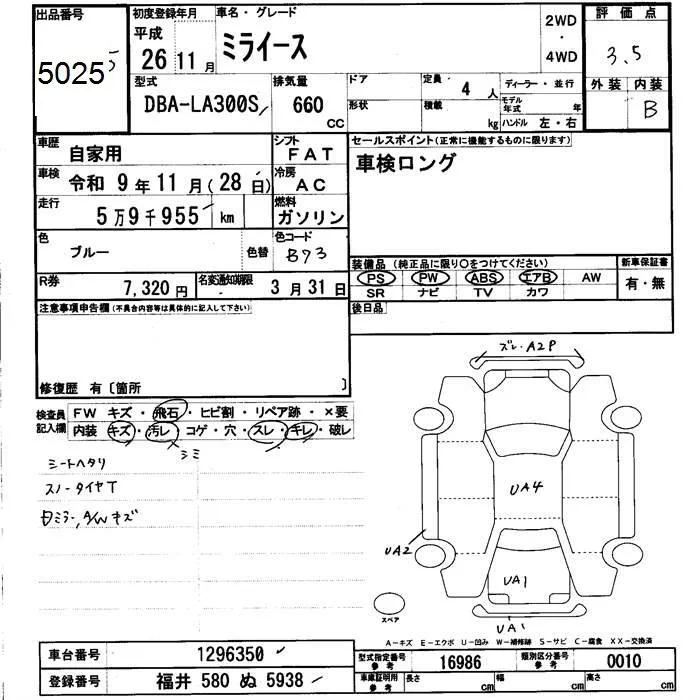 出品番号
5025 5
初度登録年月
平成
26 11 月
車名・グレード
ミライース
2WD
・
4WD
評価点
3.5
外装 内装
B
型式
DBA-LA300S
排気量
660 CC
ドア
形状
定員 4 人
積載 kg
ディーラー・並行
モデル年式 年
ハンドル 左・右
車歴
自家用
シフト
FAT
車検 令和 9 年 11 月 ( 28 日)
冷房
AC
走行
5万9千955 km
燃料
ガソリン
色
ブルー
色替
色コード
B73
R券
7,320 円
名変通知期限
3 月 31 日
セールスポイント(正常に機能するものに限ります)
車検ロング
装備品 (純正品に限り○をつけてください)
PS PW ABS エアB AW
SR ナビ TV カワ
新車保証書
有・無
後日品
注意事項申告欄(不具合内容等は具体的に記入して下さい)
修復歴 有〔箇所 〕
検査員記入欄
FW キズ・飛石・ヒビ割・リペア跡・×要
内装 キズ・汚レ・コゲ・穴・スレ・キレ・破レ
シミ
シートヘタリ
スノータイヤT
ミラー,A/Wキズ
ズレ・A2P
UA4
UA2
UA1
UA1
スペア
A-キズ E-エクボ U-凹み W-補修跡 S-サビ C-腐食 XX-交換済
車台番号 1296350
登録番号 福井 580 ぬ 5938
型式指定番号 参考 16986
類別区分番号 参考 0010
車庫証明用 参考 長さ cm 幅 cm 高さ cm